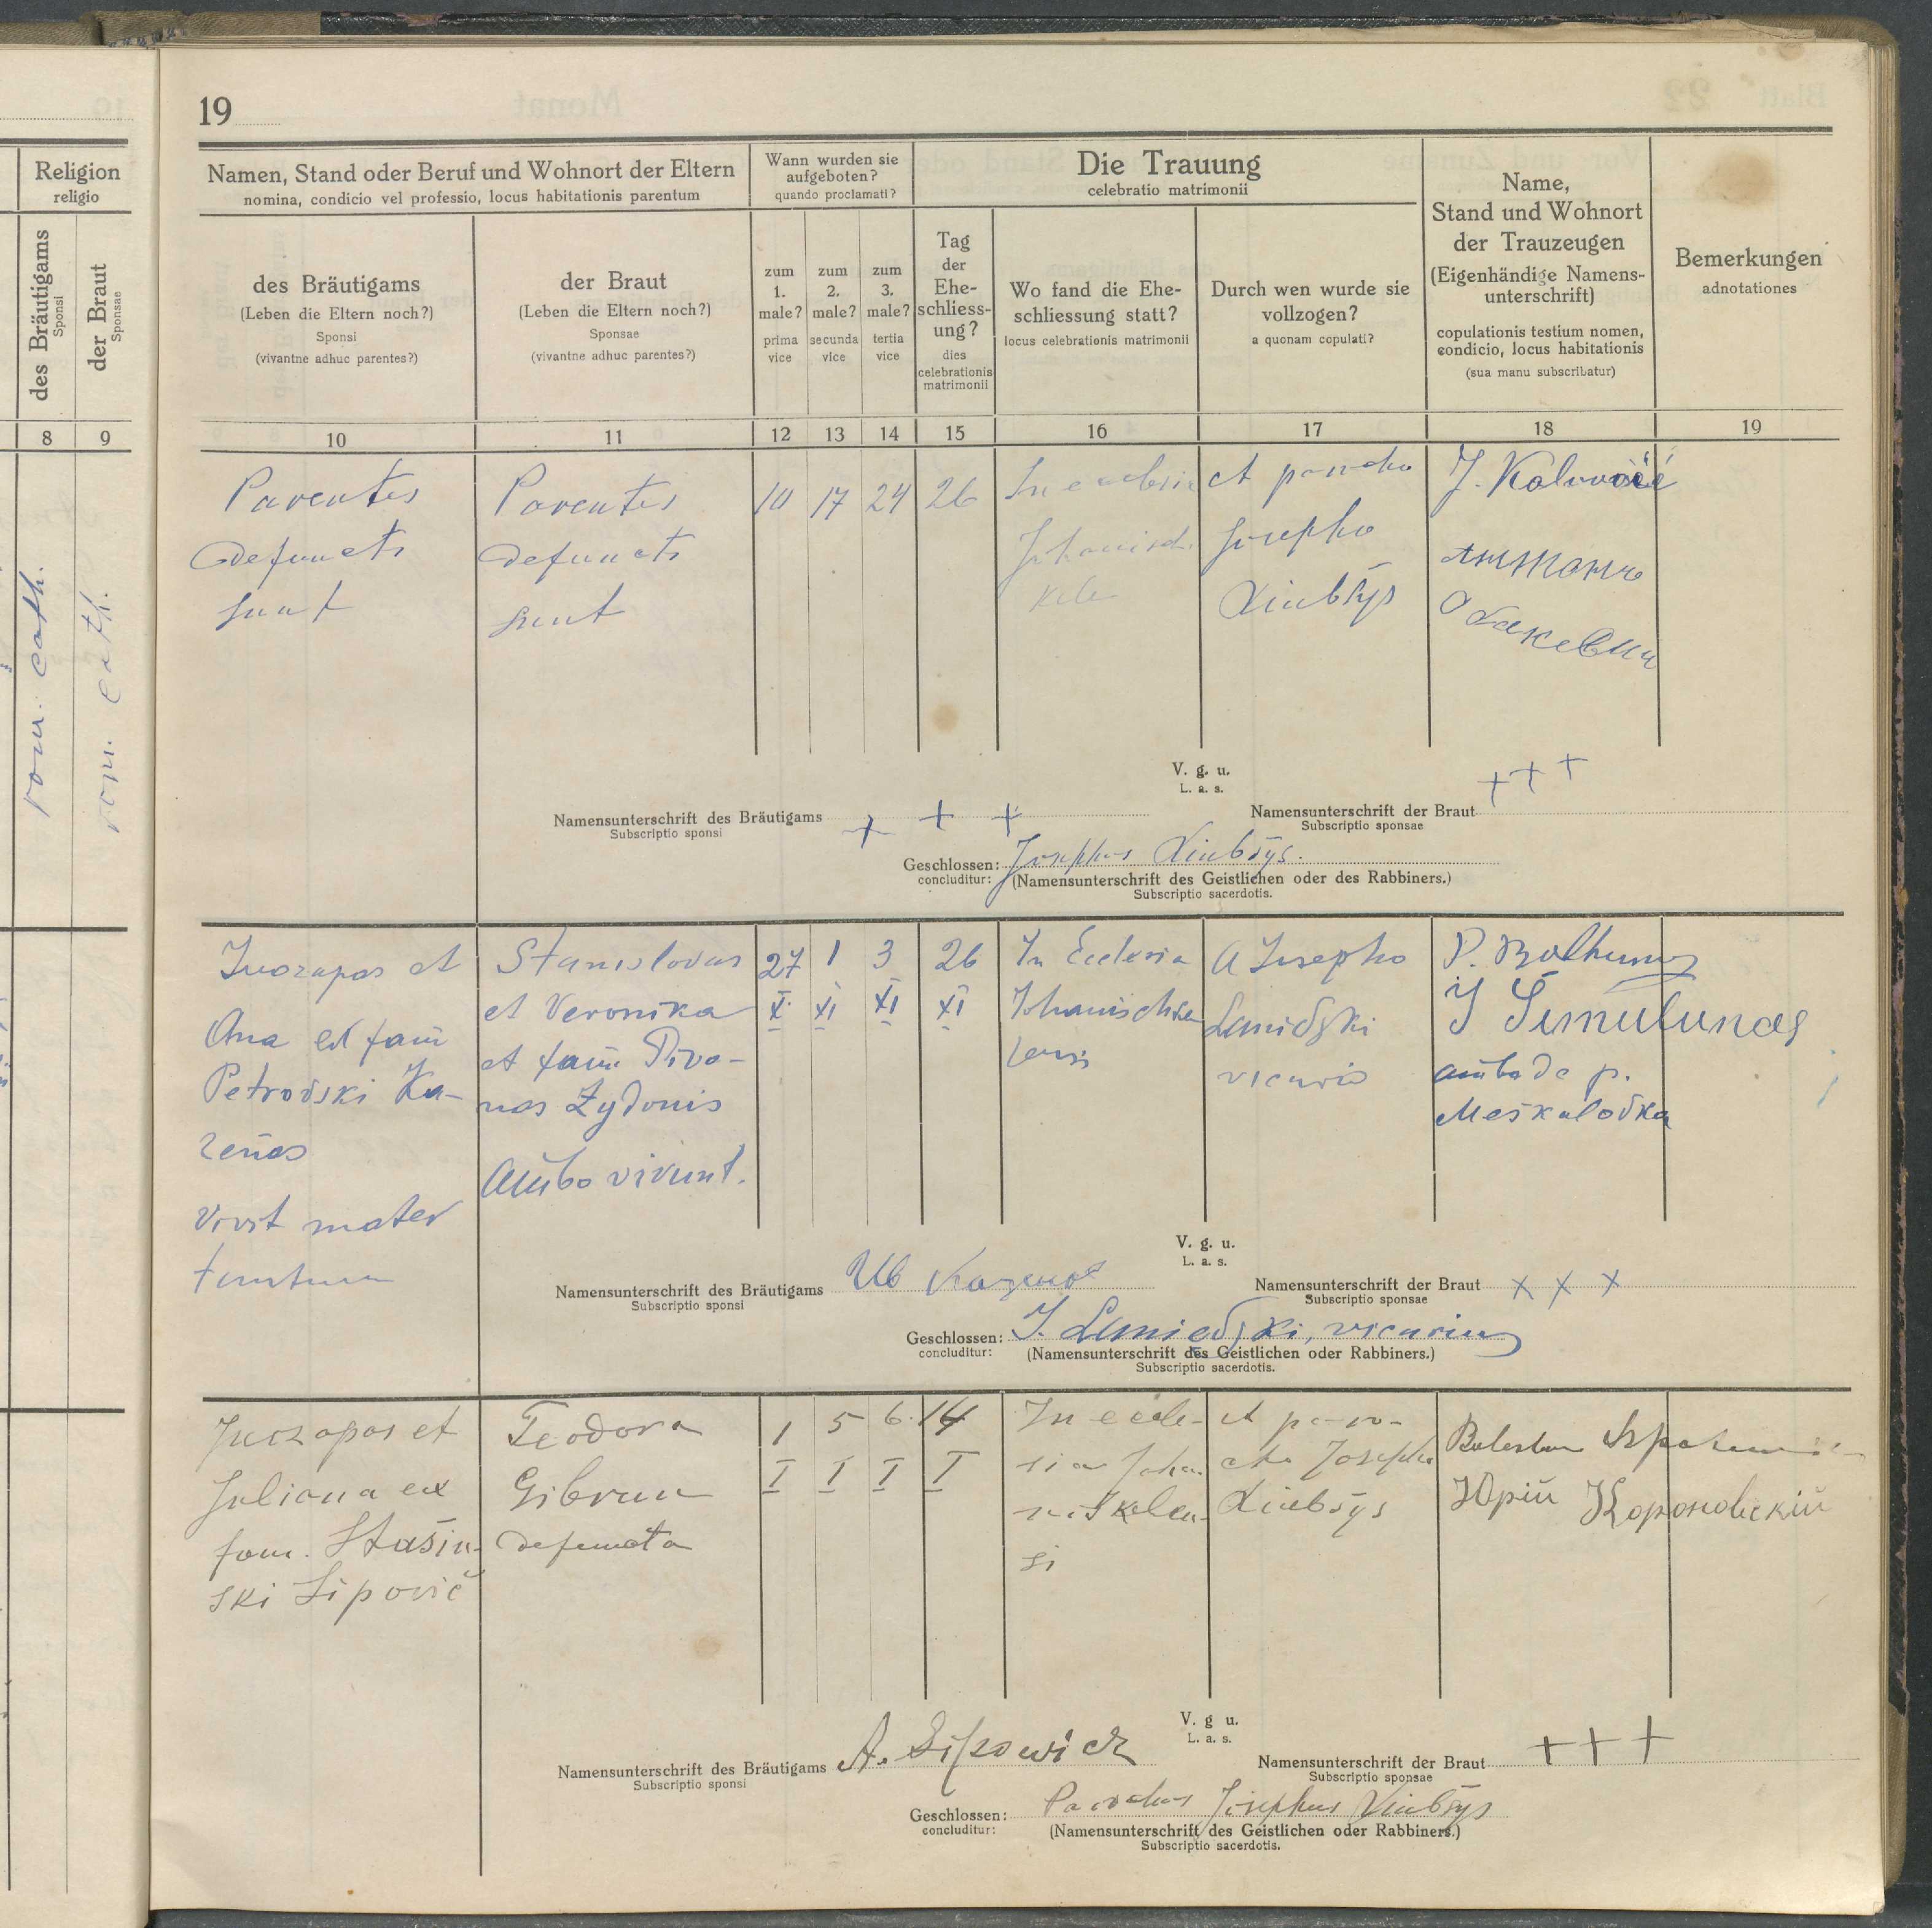 19
Religion
religio
des Bräutigams
Sponsi
der Braut
Sponsae
8
9
rom. cath.
rom. cath.
Namen, Stand oder Beruf und Wohnort der Eltern
nomina, condicio vel professio, locus habitationis parentum
Wann wurden sie
aufgeboten?
quando proclamati?
Die Trauung
celebratio matrimonii
Name,
Stand und Wohnort
der Trauzeugen
(Eigenhändige Namens-
unterschrift)
copulationis testium nomen,
condicio, locus habitationis
(sua manu subscribatur)
Bemerkungen
adnotationes
des Bräutigams
(Leben die Eltern noch?)
Sponsi
(vivantne adhuc parentes?)
der Braut
(Leben die Eltern noch?)
Sponsae
(vivantne adhuc parentes?)
zum
1.
male?
prima
vice
zum
2.
male?
secunda
vice
zum
3.
male?
tertia
vice
Tag
der
Ehe-
schliess-
ung?
dies
celebrationis
matrimonii
Wo fand die Ehe-
schliessung statt?
locus celebrationis matrimonii
Durch wen wurde sie
vollzogen?
a quonam copulati?
10
11
12
13
14
15
16
17
18
19
Parentes
defuncti
sunt
Parentes
defuncti
sunt
10
17
24
26
In
A parocho
Josepho
V. g. u.
L. a. s.
Namensunterschrift des Bräutigams + + +
Subscriptio sponsi
Namensunterschrift der Braut + + +
Subscriptio sponsae
Geschlossen: Josephus
concluditur:
(Namensunterschrift des Geistlichen oder des Rabbiners.)
Subscriptio sacerdotis.
Juozapas et
Ana ex fam
Petrovski Ka-
zenas
Vivit mater
tantum
Stanislovas
et Veronika
et fam. Pivo-
nas Zydonis
Ambo vivunt.
27
X
1
XI
3
XI
26
XI
In Ecclesia
A Josepho
vicario
ambo de p.
V. g. u.
L. a. s.
Namensunterschrift des Bräutigams
Subscriptio sponsi
Namensunterschrift der Braut x x x
Subscriptio sponsae
Geschlossen: J. vicarius
concluditur:
(Namensunterschrift des Geistlichen oder Rabbiners.)
Subscriptio sacerdotis.
Juozapas et
Juliana ex
fam. Stašin-
ski Lipovič
Teodora
defuncta
1
I
5
I
6
I
14
I
In eccle-
sia Joha-
niškelen-
si
A paro-
cho Josepho
Юрій
V. g u.
L. a. s.
Namensunterschrift des Bräutigams A. Lipowicz
Subscriptio sponsi
Namensunterschrift der Braut +++
Subscriptio sponsae
Geschlossen: Parochus Josephus
concluditur:
(Namensunterschrift des Geistlichen oder Rabbiners.)
Subscriptio sacerdotis.